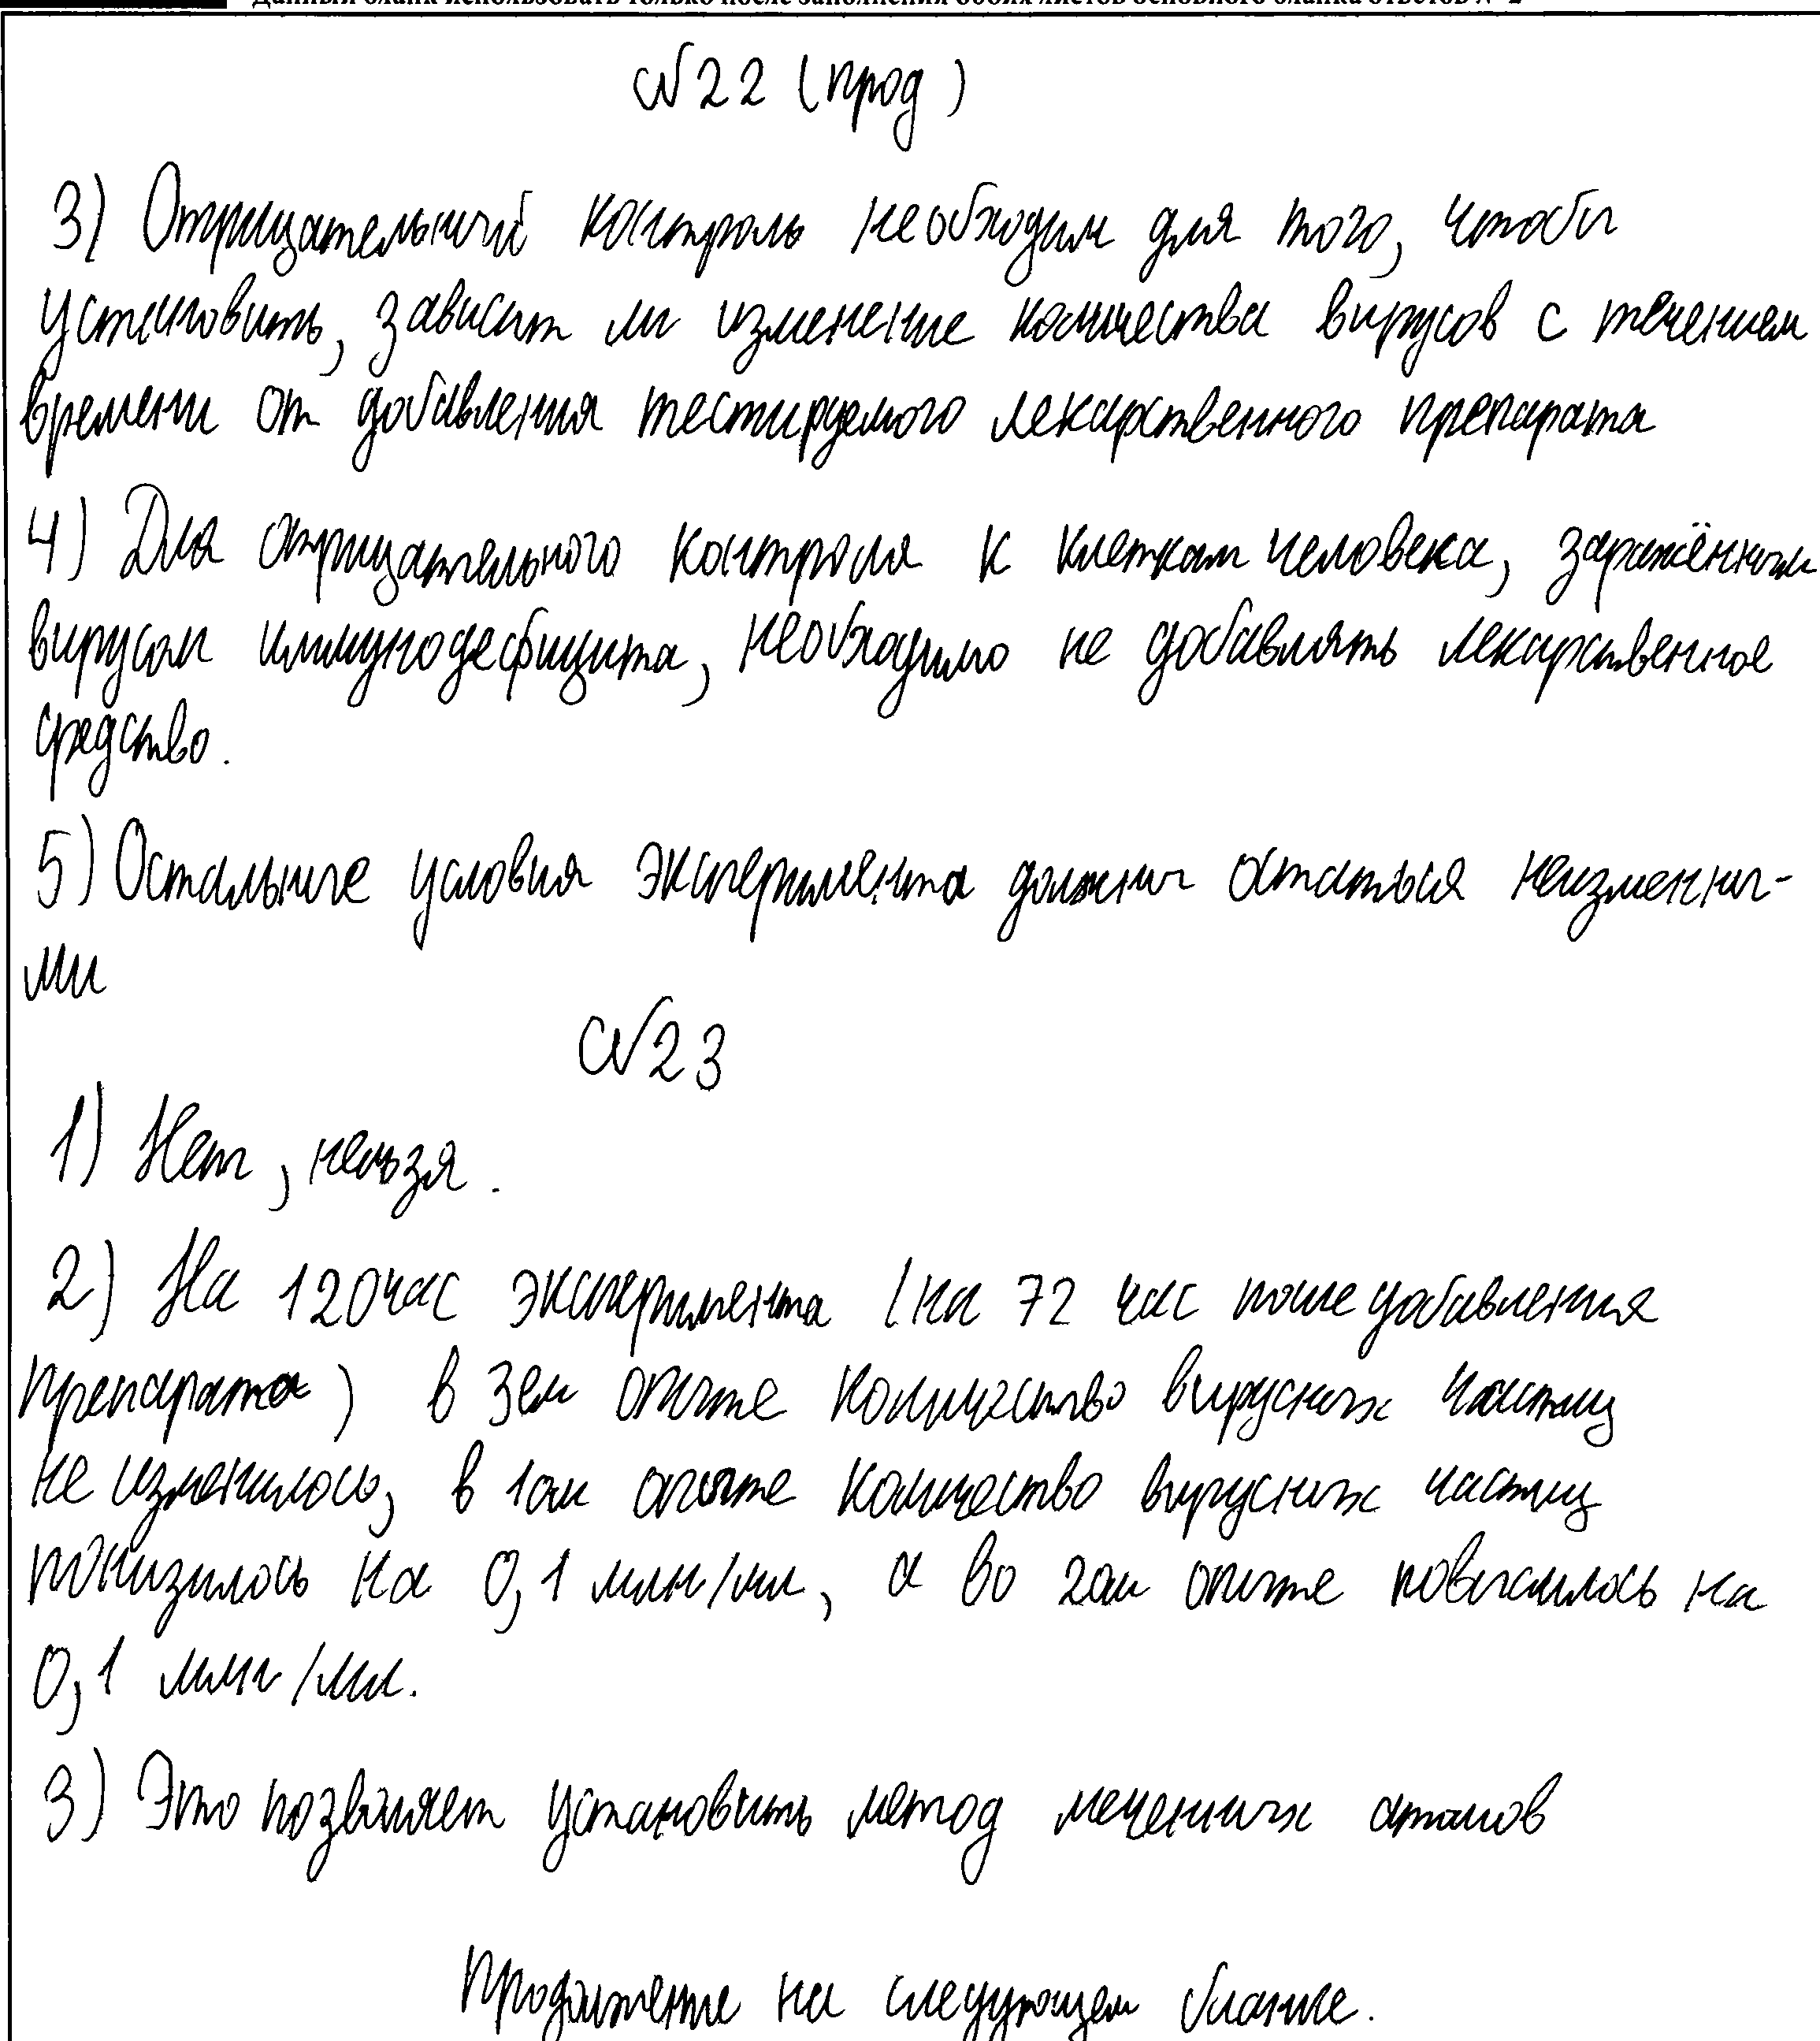 Данный бланк использовать только после заполнения обоих листов основного бланка ответов № 2
№22 (прод)
3) Отрицательный контроль необходим для того, чтобы
установить, зависит ли изменение количества вирусов с течением
времени от добавления тестируемого лекарственного препарата
4) Для отрицательного контроля к клеткам человека, заражённым
вирусом иммунодефицита, необходимо не добавлять лекарственное
средство.
5) Остальные условия эксперимента должны остаться неизменны-
ми
№23
1) Нет, нельзя.
2) На 120 час эксперимента (на 72 час после добавления
препарата) в 3ем опыте количество вирусных частиц
не изменилось, в 1ом опыте количество вирусных частиц
понизилось на 0,1 млн/мл, а во 2ом опыте повысилось на
0,1 млн/мл.
3) Это позволяет установить метод меченных атомов
Продолжение на следующем бланке.